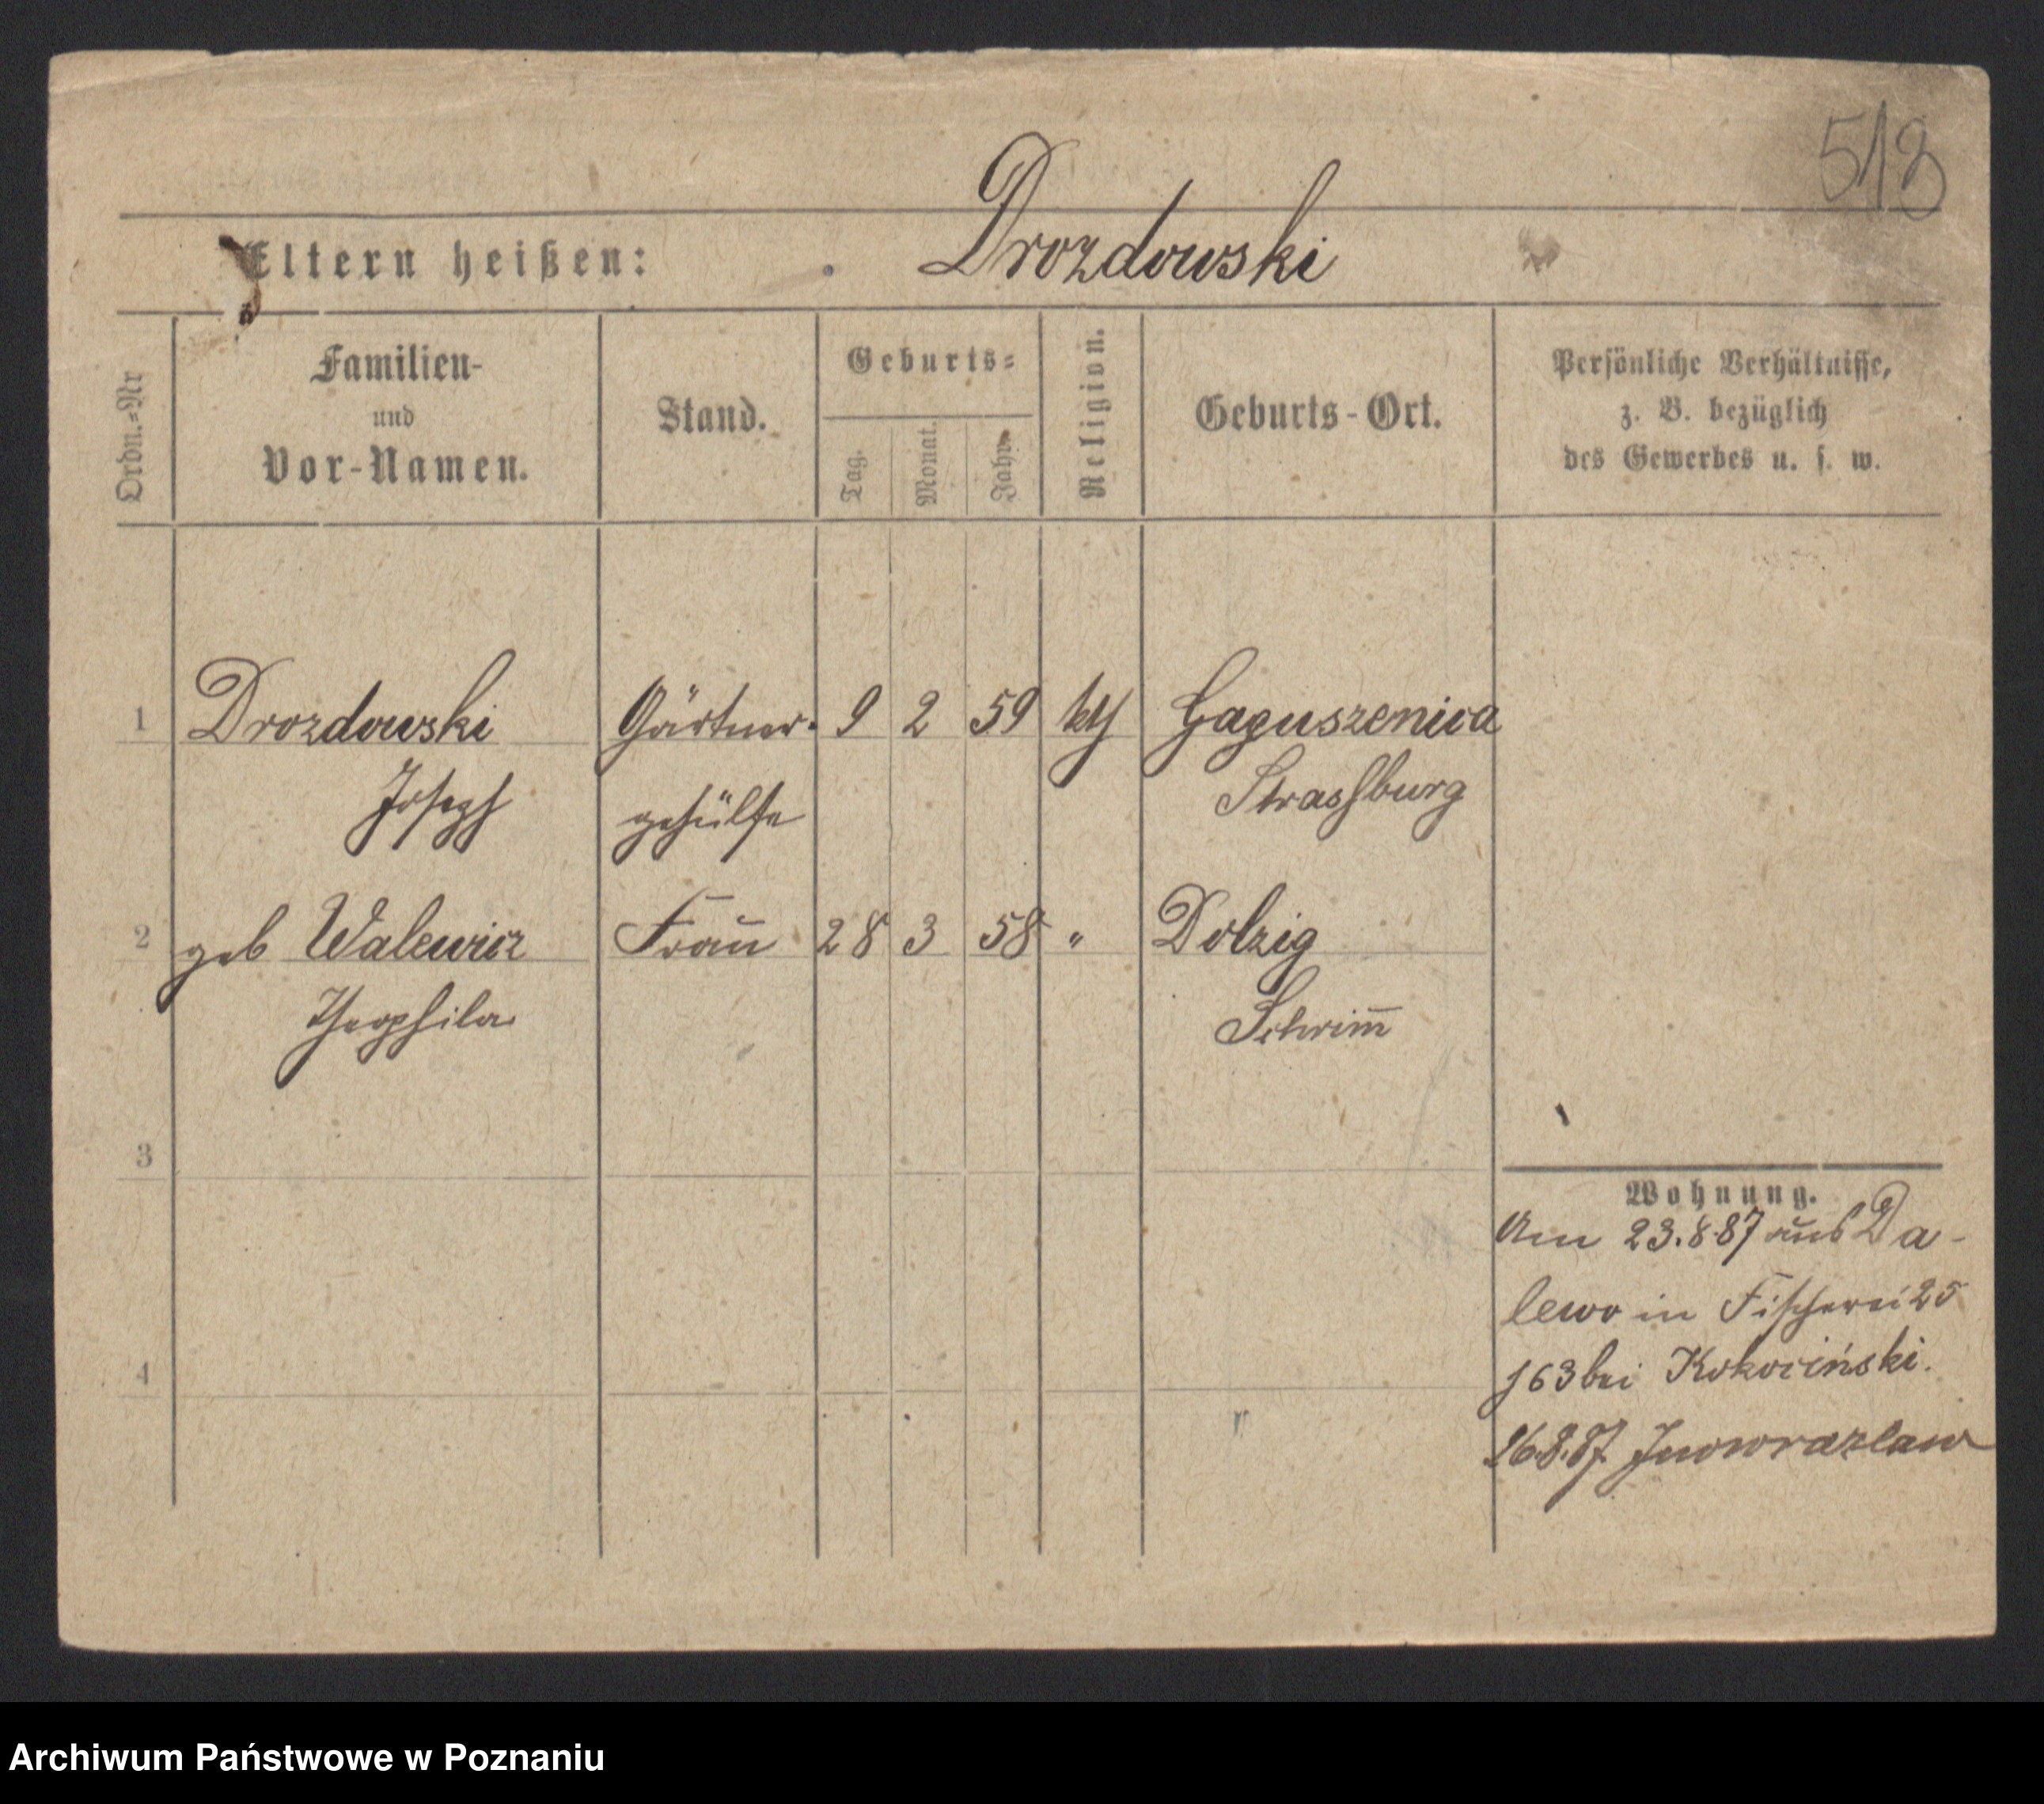 518
Eltern heißen: Drozdowski
Ordn.=Nr
Familien-
und
Vor-Namen.
Stand.
Geburts=
Tag.
Monat.
Jahr.
Religion.
Geburts-Ort.
Persönliche Verhältnisse,
z. B. bezüglich
des Gewerbes u. s. w.
1 Drozdowski Gärtner- 9 2 59 kth
Joseph gehülfe Strassburg
2 geb Walewicz Frau 28 3 58 " Dolzig
Theophila Schrim̅
3
4
Wohnung.
Am 23.8.87 aus Da-
lewo in Fischerei 25
bei Kokociński.
Inowrazlaw
Archiwum Państwowe w Poznaniu